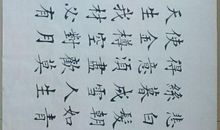 悲白髮朝如青
絲暮成雪人生
得意須盡歡莫
使金樽空對月
天生我材必有